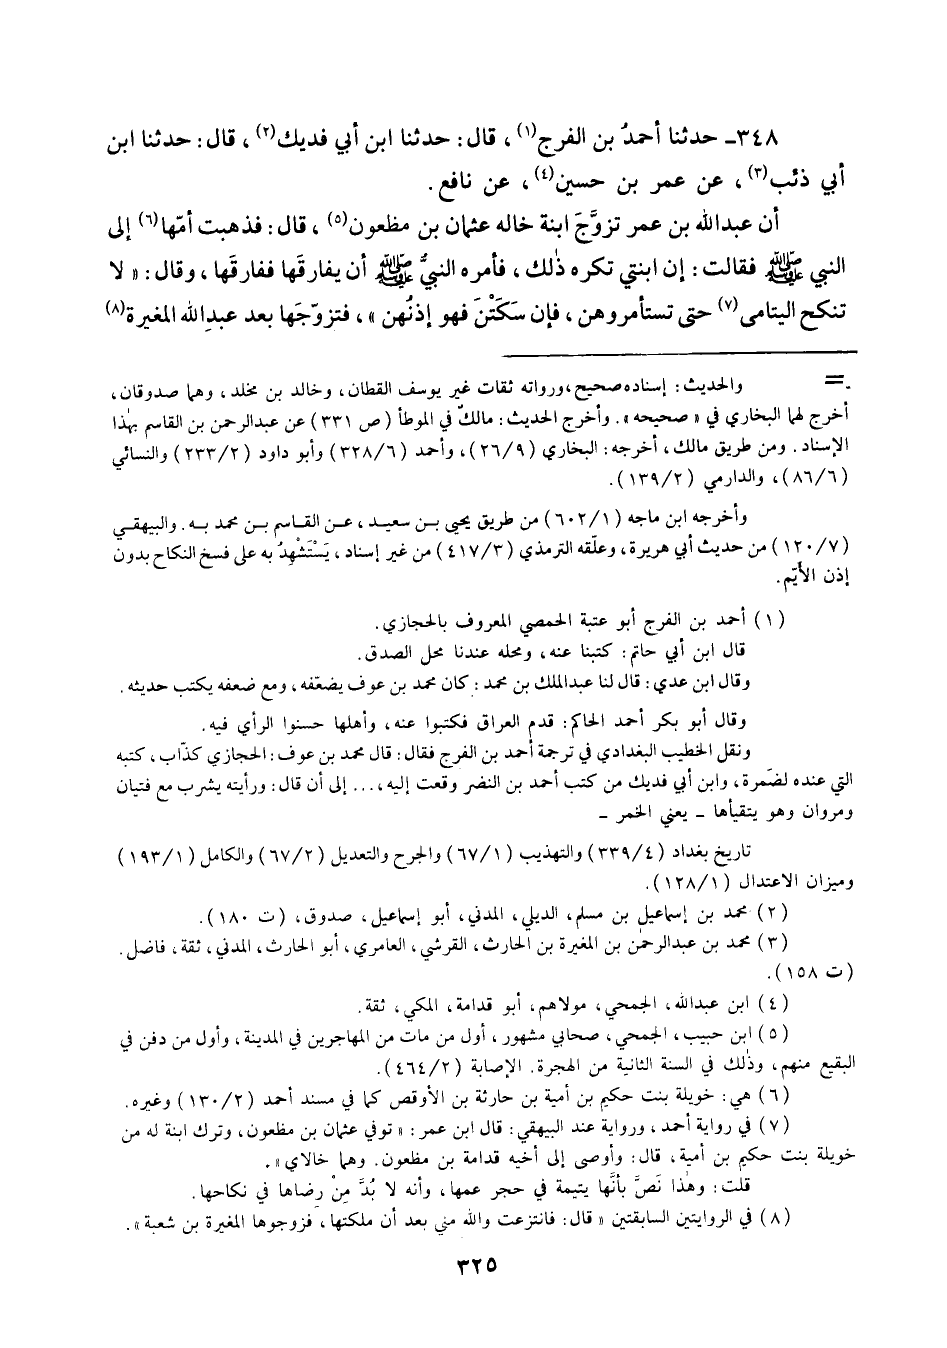 ٣٤٨ـ حدثنا أحمدُ بن الفرج(١) ، قال: حدثنا ابن أبي فديك(٢) ، قال: حدثنا ابن
أبي ذئب(٣) ، عن عمر بن حسين(٤) ، عن نافع .
أن عبدالله بن عمر تزوَّجَ ابنة خاله عثمان بن مظعون(٥) ، قال: فذهبت أمّها(٦) إلى
النبي ﷺ فقالت: إن ابنتي تكره ذٰلك ، فأمره النبيُّ ﷺ أن يفارقَها ففارقَها ، وقال: « لا
تنكح اليتامى(٧) حتى تستأمروهن ، فإن سَكَتْنَ فهو إذنُهن » ، فتزوّجَها بعد عبدِالله المغيرة(٨)
= والحديث: إسناده صحيح، ورواته ثقات غير يوسف القطان، وخالد بن مخلد، وهما صدوقان،
أخرج لهما البخاري في « صحيحه» . وأخرج الحديث: مالكٌ في الموطأ (ص ٣٣١) عن عبدالرحمن بن القاسم بهٰذا
الإسناد. ومن طريق مالك، أخرجه: البخاري (٢٦/٩)، وأحمد (٣٢٨/٦) وأبو داود (٢٣٣/٢) والنسائي
(٨٦/٦)، والدارمي (١٣٩/٢).
وأخرجه ابن ماجه (٦٠٢/١) من طريق يحيى بن سعيد، عن القاسم بن محمد به. والبيهقي
(١٢٠/٧) من حديث أبي هريرة، وعلّقه الترمذي (٤١٧/٣) من غير إسناد، يَسْتَشْهِدُ به على فسخ النكاح بدون
إذن الأيّم.
(١) أحمد بن الفرج أبو عتبة الحمصي المعروف بالحجازي.
قال ابن أبي حاتم: كتبنا عنه، ومحله عندنا محل الصدق.
وقال ابن عدي: قال لنا عبدالملك بن محمد: كان محمد بن عوف يضعّفه، ومع ضعفه يكتب حديثه.
وقال أبو بكر أحمد الحاكم: قدم العراق فكتبوا عنه، وأهلها حسنوا الرأي فيه.
ونقل الخطيب البغدادي في ترجمة أحمد بن الفرج فقال: قال محمد بن عوف: الحجازي كذّاب، كتبه
التي عنده لضَمرة، وابن أبي فديك من كتب أحمد بن النضر وقعت إليه،... إلى أن قال: ورأيته يشرب مع فتيان
ومروان وهو يتقيأها ـ يعني الخمر ـ
تاريخ بغداد (٣٣٩/٤) والتهذيب (٦٧/١) والجرح والتعديل (٦٧/٢) والكامل (١٩٣/١)
وميزان الاعتدال (١٢٨/١).
(٢) محمد بن إسماعيل بن مسلم، الديلي، المدني، أبو إسماعيل، صدوق، (ت ١٨٠).
(٣) محمد بن عبدالرحمٰن بن المغيرة بن الحارث، القرشي، العامري، أبو الحارث، المدني، ثقة، فاضل.
(ت ١٥٨).
(٤) ابن عبدالله، الجمحي، مولاهم، أبو قدامة، المكي، ثقة.
(٥) ابن حبيب، الجمحي، صحابي مشهور، أول من مات من المهاجرين في المدينة، وأول من دفن في
البقيع منهم، وذٰلك في السنة الثانية من الهجرة. الإصابة (٤٦٤/٢).
(٦) هي: خويلة بنت حكيم بن أمية بن حارثة بن الأوقص كما في مسند أحمد (١٣٠/٢) وغيره.
(٧) في رواية أحمد، ورواية عند البيهقي: قال ابن عمر: «توفي عثمان بن مظعون، وترك ابنة له من
خويلة بنت حكيم بن أمية، قال: وأوصى إلى أخيه قدامة بن مظعون. وهما خالاي».
قلت: وهٰذا نَصٌّ بأنَّها يتيمة في حجر عمها، وأنه لا بُدَّ مِنْ رِضاها في نكاحها.
(٨) في الروايتين السابقتين « قال: فانتزعت والله مني بعد أن ملكتها، فزوجوها المغيرة بن شعبة».
٣٢٥